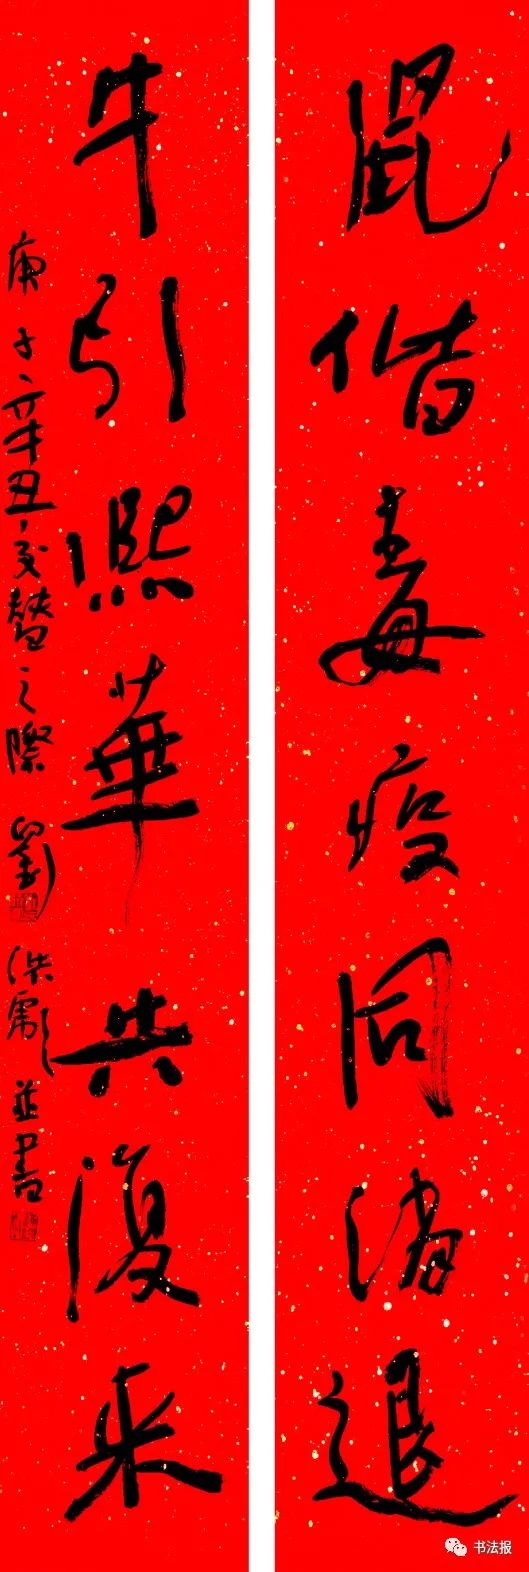 鼠偕毒疫同消退
牛引熙華共復来
庚子辛丑交替之際 劉洪彪並書
书法报